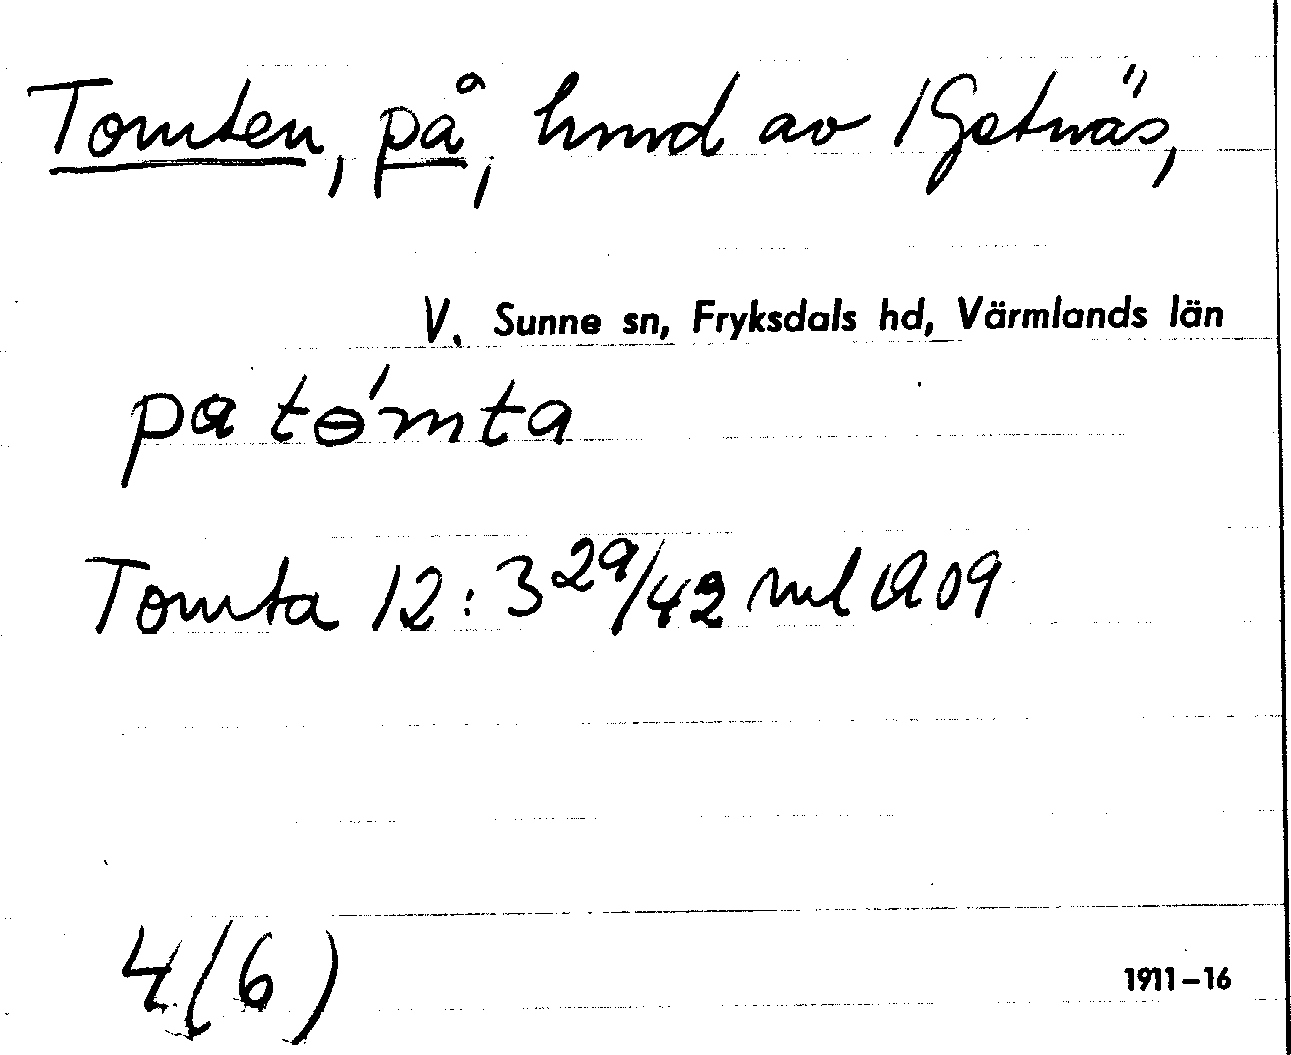 Tomten, på, hmd av 1 Getnäs,
V. Sunne sn, Fryksdals hd, Värmlands län
pa tɵ́mta
Tomta 12:3 29/42 ml 1909
4(6)
1911–16